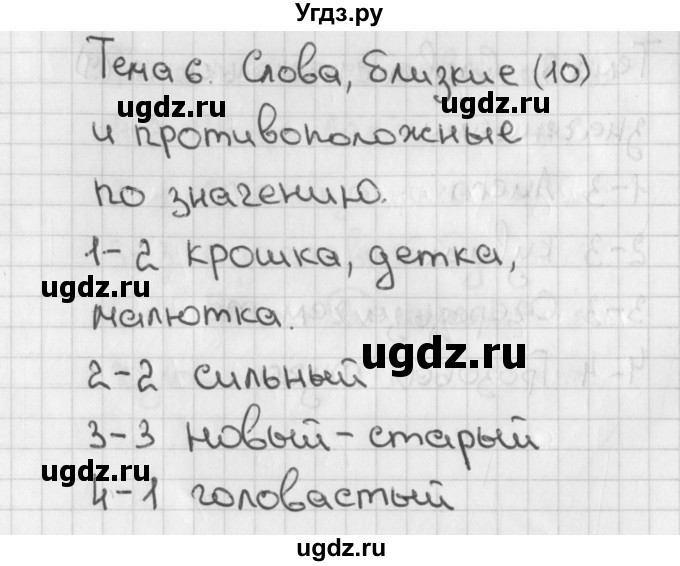 Угдз.ру
Тема 6. Слова, близкие (10)
ugdz.ru ugdz.ru
и противоположные
по значению.
1-2 крошка, детка,
ugdz.ru
малютка.
ugdz.ru
2-2 сильный
3-3 новый-старый
ugdz.ru
4-1 головастый
ugdz.ru